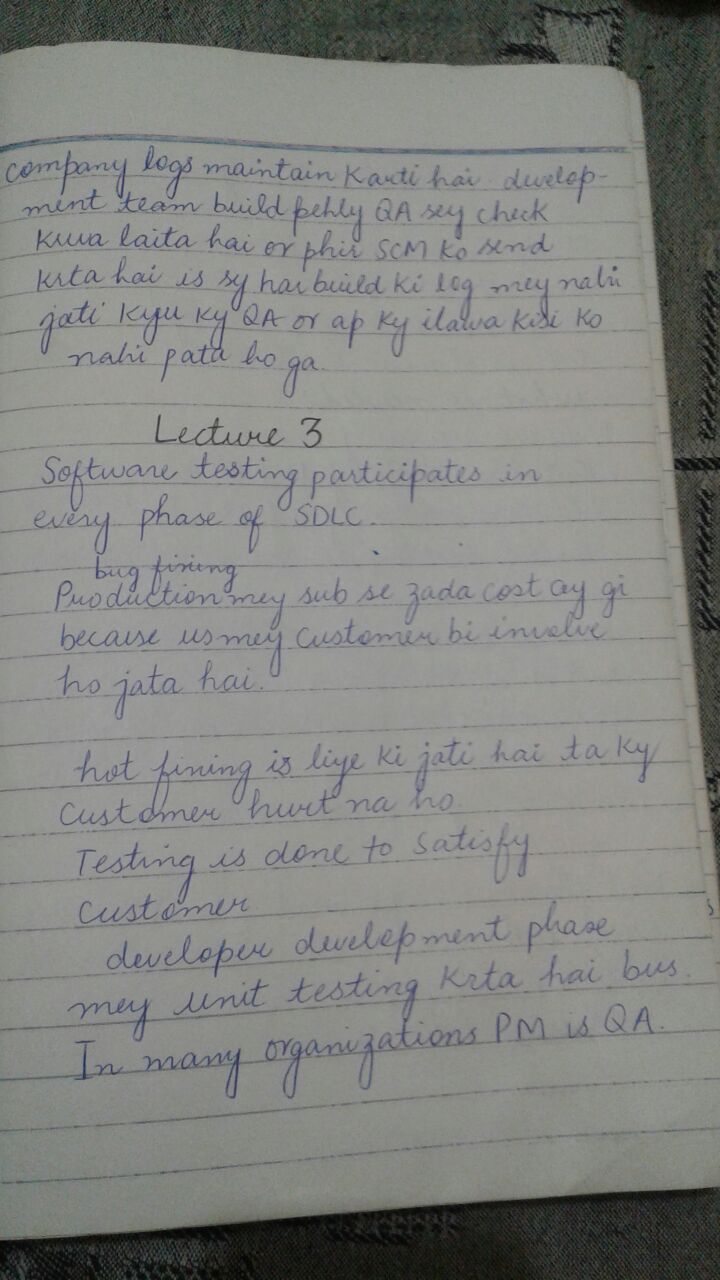 company logs maintain Karti hai. develop-
ment team build pehly QA sey check
krwa laita hai or phir SCM ko send
krta hai is sy har build ki log mey nahi
jati kyu ky QA or ap ky ilawa kisi ko
nahi pata ho ga.
Lecture 3
Software testing participates in
every phase of SDLC.
bug fixing
Production mey sub se zada cost ay gi
because us mey customer bi involve
ho jata hai.
hot fixing is liye ki jati hai ta ky
Customer hurt na ho.
Testing is done to satisfy
Customer
developer development phase
mey unit testing krta hai bus.
In many organizations PM is QA.